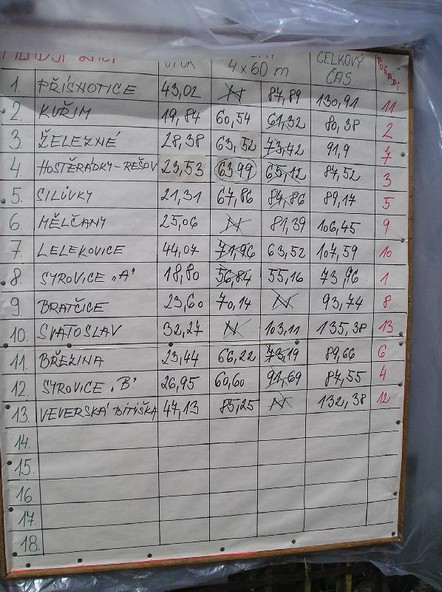 MLADŠÍ ŽÁCI ÚTOK 4 x 60 m CELKOVÝ ČAS POŘADÍ
1. PŘÍSNOTICE 43,02 N 87,89 130,91 11
2. KUŘIM 19,84 60,54 61,32 80,38 2
3. ŽELEZNÉ 28,38 63,52 73,42 91,9 7
4. HOSTĚRÁDKY-REŠOV 23,53 63,99 65,12 87,52 3
5. SILŮVKY 21,31 67,86 84,86 89,17 5
6. MĚLČANY 25,06 N 81,39 106,45 9
7. LELEKOVICE 44,07 71,96 63,52 107,59 10
8. SYROVICE "A" 18,80 56,84 55,16 73,96 1
9. BRATČICE 23,60 70,14 N 93,74 8
10. SVATOSLAV 32,27 N 103,11 135,38 13
11. BŘEZINA 23,44 66,22 73,19 89,66 6
12. SYROVICE "B" 26,95 60,60 91,69 87,55 4
13. VEVERSKÁ BITÍŠKA 47,13 85,25 N 132,38 12
14.
15.
16.
17.
18.